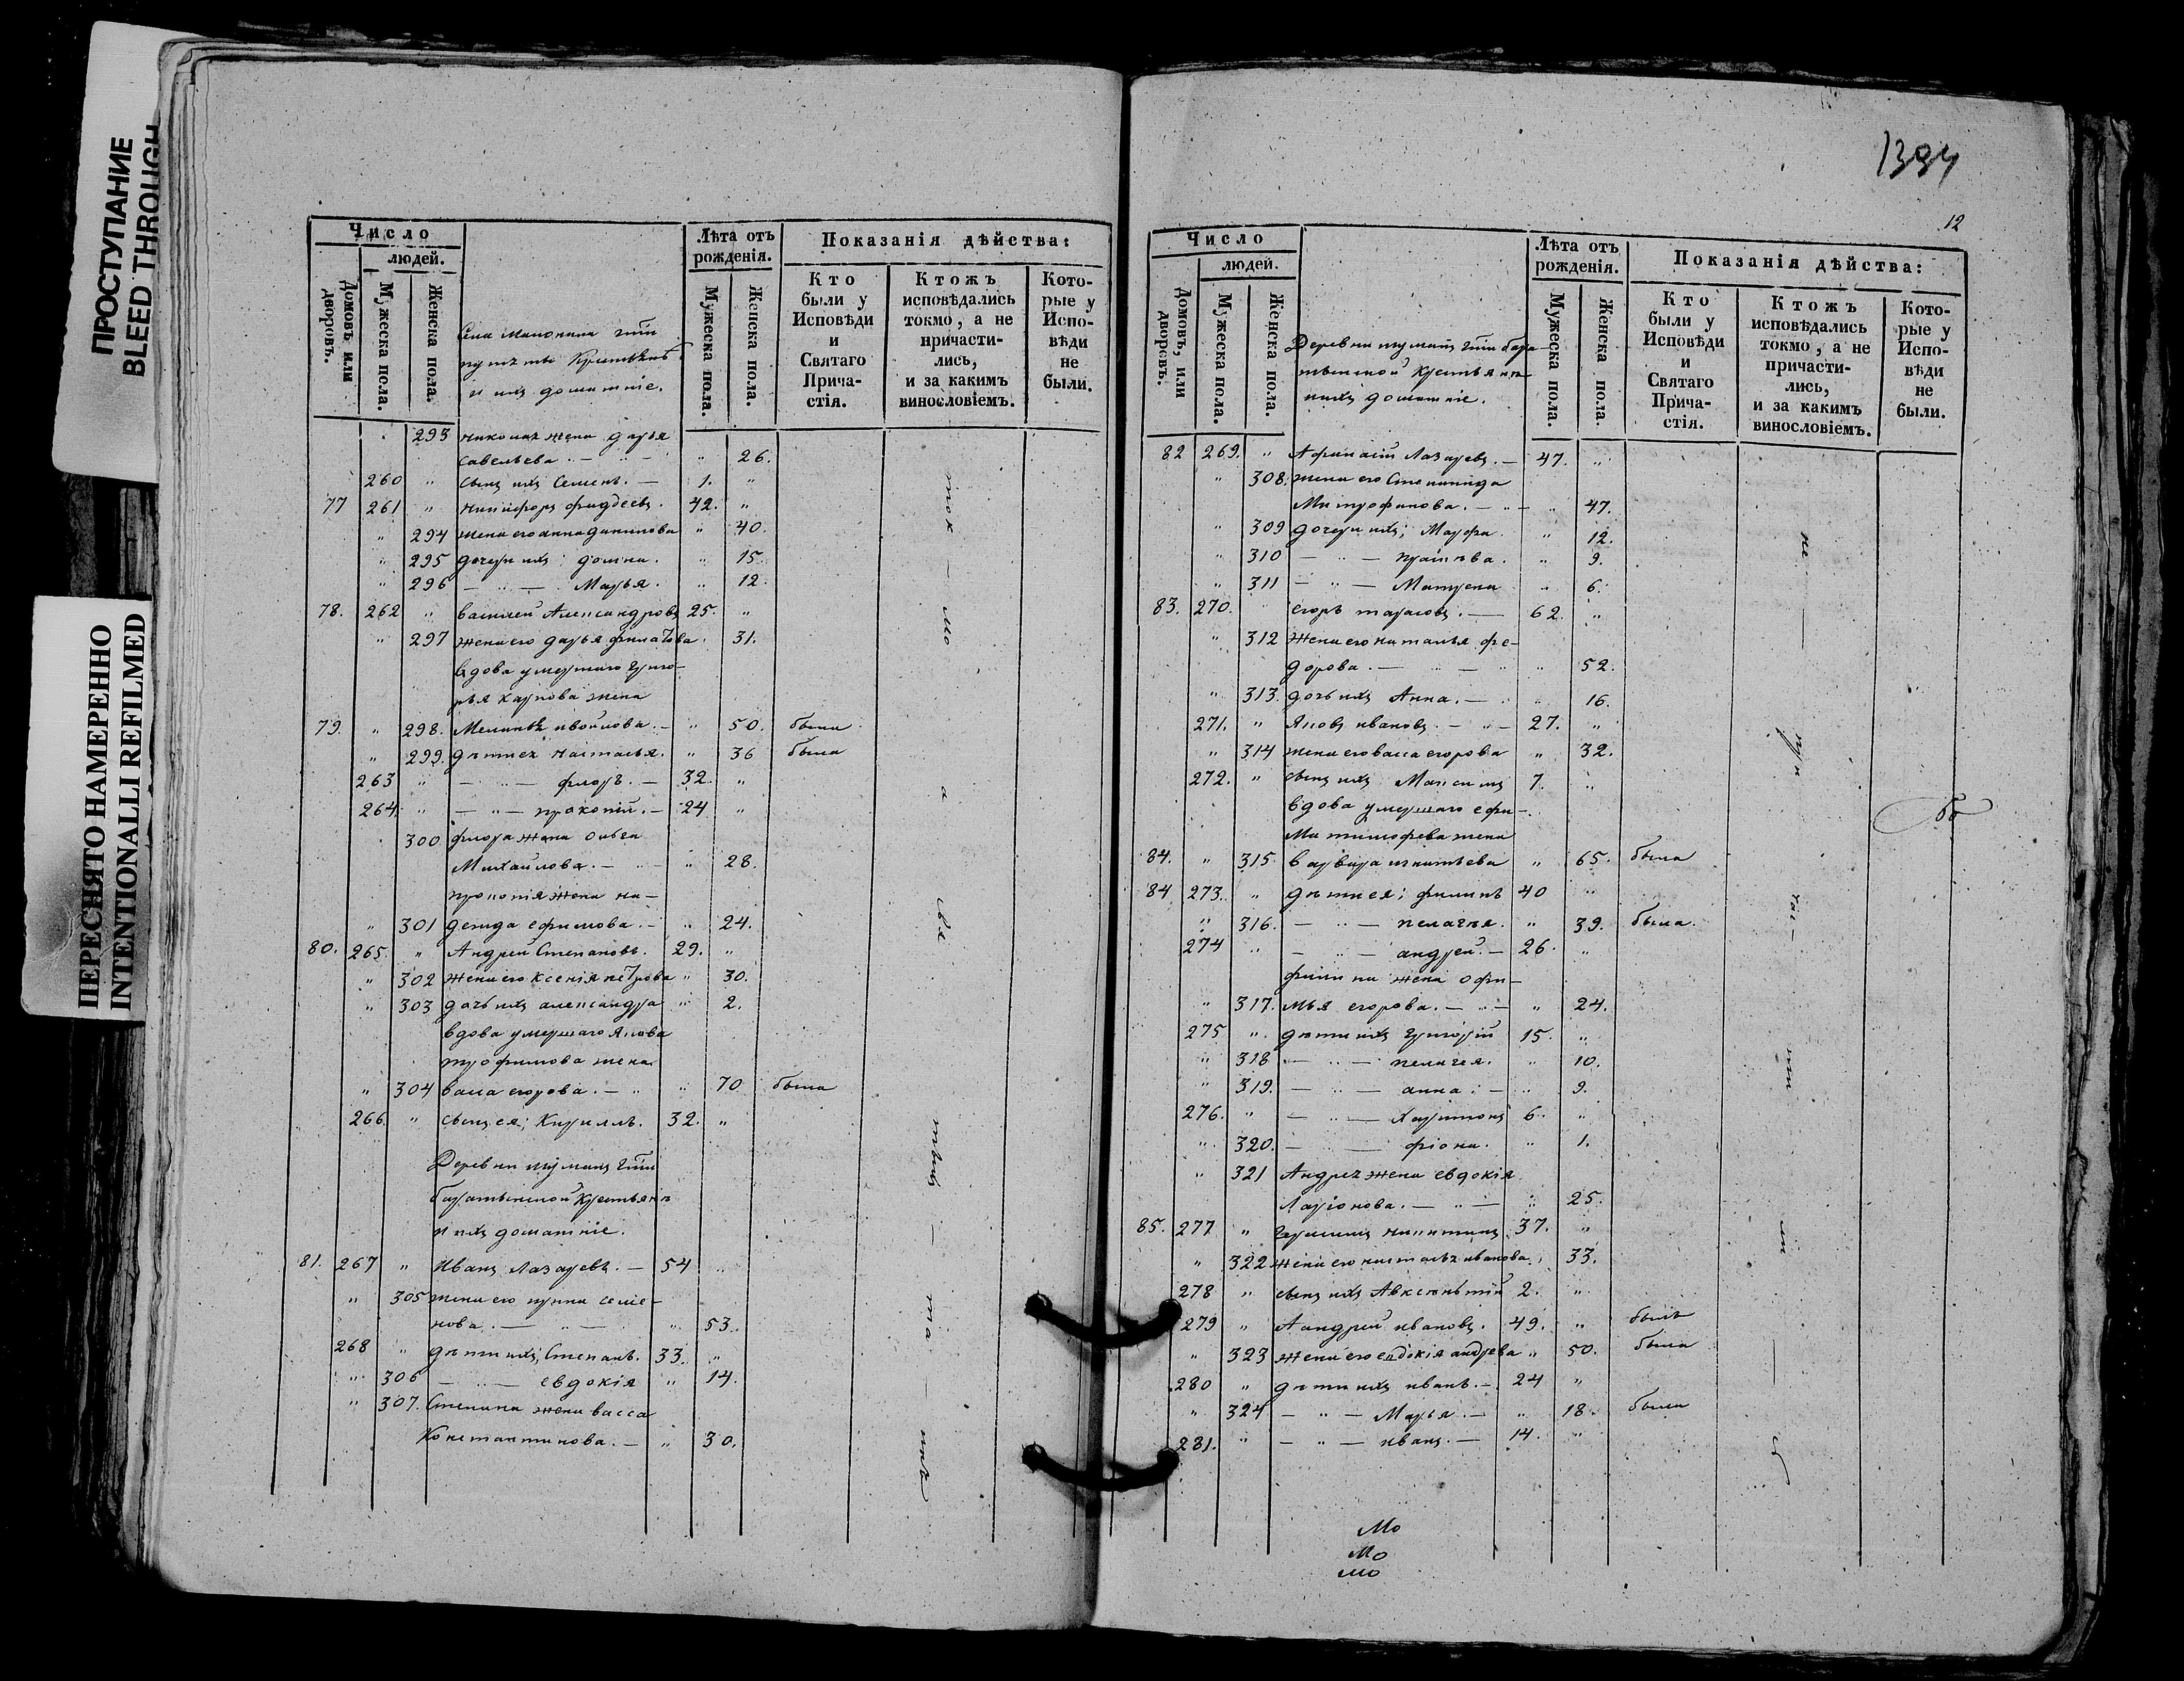 ПРОСТУПАНИЕ
BLEED THROUGH
ПЕРЕСНЯТО НАМЕРЕННО
INTENTIONALLI REFILMED
Число
людей.
Домовъ или дворовъ.
Мужеска пола.
Женска пола.
Лѣта отъ рожденія.
Мужеска пола.
Женска пола.
Показанія дѣйства:
Кто были у Исповѣди и Святаго Причастія.
Ктожъ исповѣдались токмо, а не причастились, и за какимъ винословіемъ.
Которые у Исповѣди не были.
и ихъ домашніе.
293 жена дарья
савельева. — " — " 26.
260 " сынъ ихъ Семенъ. — 1. "
77 261 " никифоръ фадѣевъ. 42. "
" 294 жена его анна данилова " 40.
" 295 дочери ихъ: домна. " 15.
" 296 — " — Марья. " 12.
78. 262 " василей Александровъ 25. "
" 297 жена его дарья филатова. 31.
вдова умершаго григо-
рья карпова жена
79. " 298. — " 50. была
" 299. дѣти ея настасья. " 36 была
263 " — " — флоръ. — 32. "
264. " — " — прокопій. — 24 "
300 флора жена ольга
Михайлова. — " — " 28.
прокопія жена на-
" 301 дежда ефимова. — " 24.
80. 265. " Андрей Степановъ. 29. "
" 302 жена его ксенія петрова " 30.
" 303 дочь ихъ александра " 2.
вдова умершаго Якова
трофимова жена
" 304 васса егорова. — " " 70 была
266. " сынъ ея; Кириллъ. 32. "
Деревни
крестьянѣ
и ихъ домашніе.
81. 267 " Иванъ Лазаревъ. — 54 "
" 305 жена его ирина семе-
нова. — " — " 53.
268 " дѣти ихъ; Степанъ. 33. "
" 306 — " — евдокія " 14.
" 307. Степана жена васса
Константинова. — " 30.
1394
12
Число
людей.
Домовъ, или дворовъ.
Мужеска пола.
Женска пола.
Лѣта отъ рожденія.
Мужеска пола.
Женска пола.
Показанія дѣйства:
Кто были у Исповѣди и Святаго Причастія.
Ктожъ исповѣдались токмо, а не причастились, и за какимъ винословіемъ.
Которые у Исповѣди не были.
Деревни
крестьянѣ
и ихъ домашніе.
82 269. " Афанасій Лазаревъ. — 47. "
" 308. жена его Степанида
Митрофанова. — " — " 47.
" 309 дочери ихъ; Марфа. " 12.
" 310 — " — " 9.
" 311 — " — Матрена " 6.
83. 270. " егоръ тарасовъ. — 62. "
" 312 жена его наталья фе-
дорова. — " — " 52.
" 313. дочь ихъ Анна. — " 16.
271. " Яковъ ивановъ. — " — 27. "
" 314 жена его васса егорова " 32.
272. " сынъ ихъ Максимъ 7. "
вдова умершаго ефи-
ма тимофеева жена
84. " 315. варвара игнатьева " 65. была
84 273. " дѣти ея; филипъ 40 "
" 316. — " — пелагея. " 39. была.
274 " — " — андрей. — 26. "
филипа жена офи-
" 317. мья егорова. — " — " 24.
275 " дѣти ихъ григорій 15. "
" 318 — " — пелагея. " 10.
" 319. — " — анна: — " 9.
276. " — " — Харитонъ 6. "
" 320. — " — фіона. " 1.
" 321 Андрея жена евдокія
Ларіонова. — " — " 25.
85. 277 " никитинъ 37. "
" 322 жена его наталья иванова. 33.
278 " сынъ ихъ Авксентій 2. "
279 " Андрей ивановъ. 49. " былъ
" 323 жена его евдокія андреева " 50. была
280 " дѣти ихъ иванъ. — 24 "
" 324 — " — Марья. — " 18. была
281. " — " — иванъ. — 14. "
Мо
Мо
мо